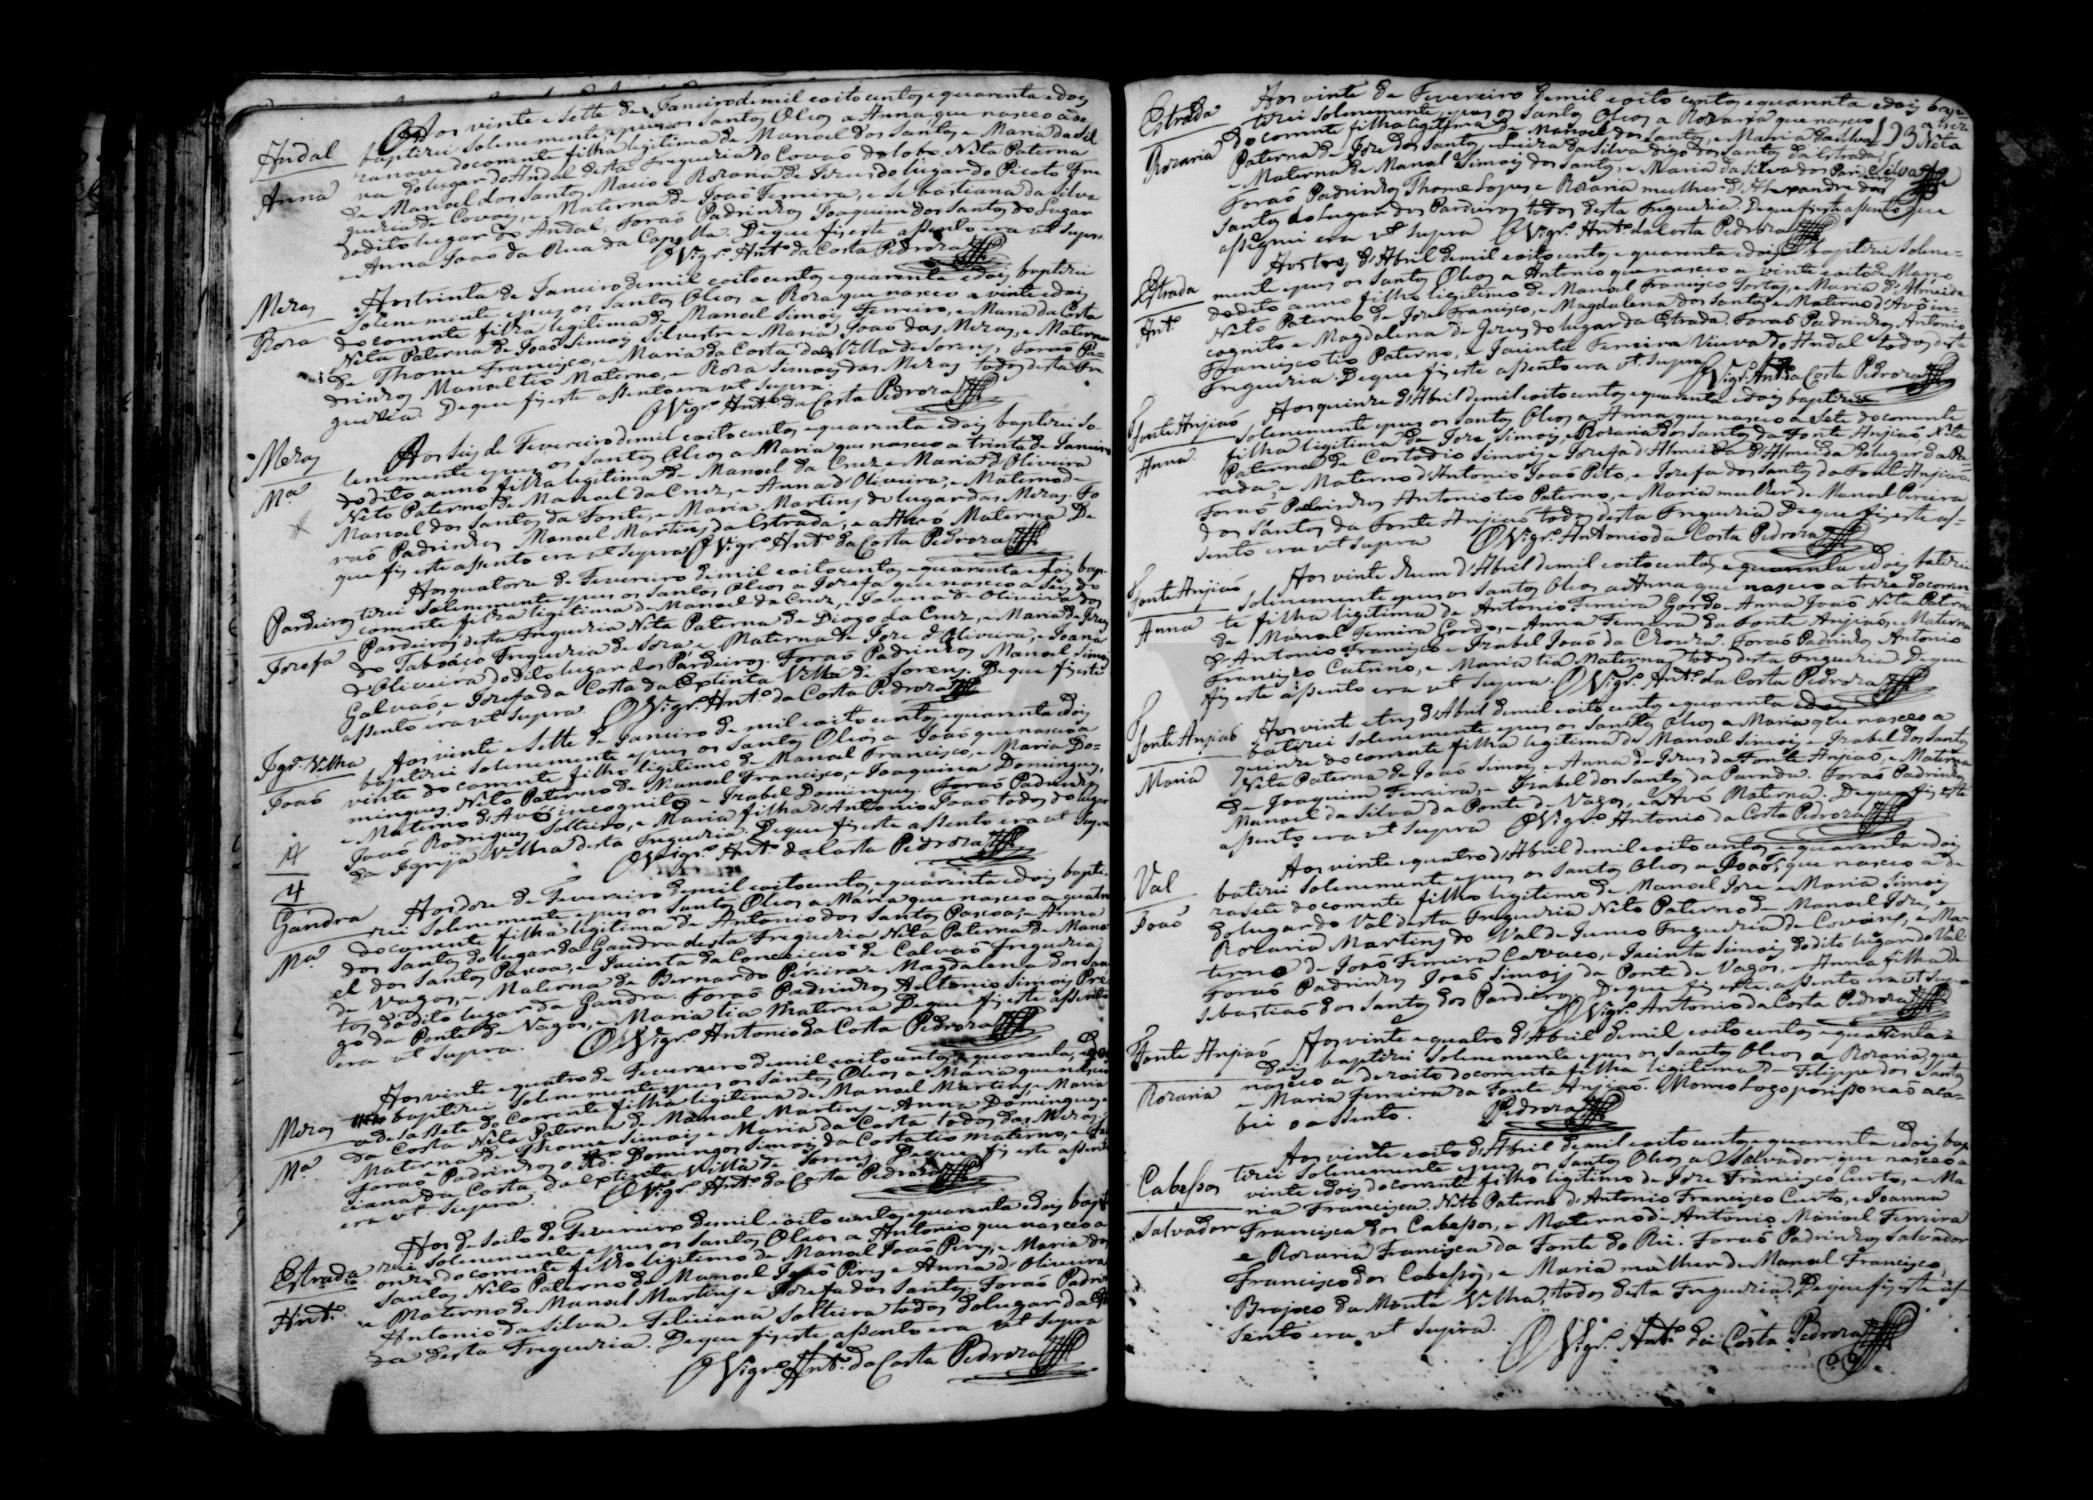 Andal
Anna
Aos vinte e sette de Janeiro de mil e oito centos e quarenta e dois
baptizei solenemente e puz os Santos Oleos a Anna que nasceo a de
zanove do corrente filha legitima de Manoel dos Santos e Maria da Sil
va do lugar do Andal desta Freguezia do Covaõ do Lobo. Neta Paterna
de Manoel dos Santos Marcio e Rozaria de Jezus do lugar do Picoto Fre
guezia de Covoẽs, e Materna de Joaõ Ferreira, e Sebastiana da Silva
do dito lugar do Andal. Foraõ Padrinhos Joaquim dos Santos do Lugar
e Anna Joaõ da Rua da Capella. De que fiz este assento era ut supra
O Vigr.º Ant.º da Costa Pedroza
Mezas
Roza
Aos trinta de Janeiro de mil e oito centos e quarenta e dois baptizei
solenemente e puz os Santos Oleos a Roza que nasceo a vinte e dois
do corrente filha legitima de Manoel Simois Ferreiro, e Maria da Costa
Neta Paterna de Joaõ Simois Silvestre e Maria Joaõ das Mezas, e Materna
de Thome Francisco, e Maria da Costa da Villa de Sorens. Foraõ Pa-
drinhos Manoel tio Materno, e Roza Simois das Mezas todos desta Fre
guezia. De que fiz este assento era ut supra.
O Vigr.º Ant.º da Costa Pedroza
Mezas
M.ª
Aos seis de Fevereiro de mil e oito centos e quarenta e dois baptizei so
lenemente e puz os Santos Oleos a Maria que nasceo a trinta de Janeiro
do dito anno filha legitima de Manoel da Cruz e Maria d'Oliveira
Neta Paterna de Manoel da Cruz, e Anna d'Oliveira, e Materna de
Manoel dos Santos da Fonte, e Maria Martins do lugar das Mezas. Fo
raõ Padrinhos Manoel Martins da Estrada, e a Avó Materna De
que fiz este assento era ut supra. O Vigr.º Ant.º da Costa Pedroza
Pardeiros
Jozefa
Aos quatorze de Fevereiro de mil e oito centos e quarenta e dois bap-
tizei solenemente e puz os Santos Oleos a Jozefa que nasceo a seis do
corrente filha legitima de Manoel da Cruz, e Joanna de Oliveira dos
Pardeiros desta Freguezia Neta Paterna de Diogo da Cruz, e Maria de Jezus
do Taboaço Freguezia de Soza e Materna de Joze d'Oliveira, e Joana
d'Oliveira do dito lugar dos Pardeiros. Foraõ Padrinhos Manoel Simois
Galvaõ e Jozefa da Costa da Extinta Villa de Sorens. De que fiz este
assento era ut supra. O Vigr.º Ant.º da Costa Pedroza
Igr.ª Velha
Joaõ
Aos vinte e sette de Janeiro de mil e oito centos e quarenta e dois
baptizei solenemente e puz os Santos Oleos a Joaõ que nasceo a
vinte do corrente filho legitimo de Manoel Francisco, e Maria Do-
mingues. Neto Paterno de Manoel Francisco, e Joaquina Domingues,
e Materno d'Avo incognito e Izabel Domingues. Foraõ Padrinhos
Joaõ Rodrigues Solteiro, e Maria filha d'Antonio Joaõ todos do lugar
da Igreja Velha desta Freguezia. De que fiz este assento era ut supra
O Vigr.º Ant.º da Costa Pedroza
4
Gandra
M.ª
Aos doze de Fevereiro de mil e oito centos e quarenta e dois bapti-
zei solenemente e puz os Santos Oleos a Maria que nasceo a quatro
do corrente filha legitima de Antonio dos Santos Pascoa, e Anna
dos Santos do lugar da Gandra desta Freguezia Neta Paterna de Mano
el dos Santos Pascoa, e Jacinta da Conceiçaõ de Calvaõ Freguezia
de Vagos, e Materna de Bernardo Pereira e Magdalena dos San
tos do dito lugar da Gandra. Foraõ Padrinhos Antonio Simois Pre
go da Ponte de Vagos, e Maria tia Materna De que fiz este assento
era ut supra. O Vigr.º Antonio da Costa Pedroza
Mezas
M.ª
Aos vinte e quatro de Fevereiro de mil e oito centos e quarenta, e dois
baptizei solenemente e puz os Santos Oleos a Maria que nasceo
a desassete do corrente filha legitima de Manoel Martins e Maria
da Costa Neta Paterna de Manoel Martins e Anna Domingues e
Materna de Thome Simois e Maria da Costa todos das Mezas.
Foraõ Padrinhos o Rd.º Domingos Simois da Costa tio materno, e
ciana da Costa da Extinta Villa de Sorens. De que fiz este assento
era ut supra. O Vigr.º Ant.º da Costa Pedroza
Estrada
Ant.º
Aos dezoito de Fevereiro de mil e oito centos e quarenta e dois bapti
zei solenemente e puz os Santos Oleos a Antonio que nasceo a
onze do corrente filho legitimo de Manoel Joaõ Pires, e Maria dos
Santos Neto Paterno de Manoel Joaõ Pires e Anna d'Oliveira
e Materno de Manoel Martins e Jozefa dos Santos. Foraõ Padrinhos
Antonio da Silva e Feliciana Solteira todos do lugar da Estra
da desta Freguezia. De que fiz este assento era ut supra
O Vigr.º Ant.º da Costa Pedroza
193
Estrada
Rozaria
Aos vinte de Fevereiro de mil e oito centos e quarenta e dois bap
tizei solenemente, e puz os Santos Oleos a Rozaria que nasceo a treze
do corrente filha legitima de Manoel dos Santos, e Maria da Silva Neta
Paterna de Joze dos Santos, e Luiza da Silva digo dos Santos da Estrada,
e Materna de Manoel Simois dos Santos, e Maria da Silva dos Pardeiros
Foraõ Padrinhos Thome Lopes, e Rozaria mulher d'Alexandre dos
Santos do lugar dos Pardeiros todos desta Freguezia. De que fiz este assento que
assignei era ut supra O Vigr.º Ant.º da Costa Pedroza
Estrada
Ant.º
Aos tres d'Abril de mil e oito centos e quarenta e dois baptizei solene-
mente e puz os Santos Oleos a Antonio que nasceo a vinte e oito de Março
do dito anno filho legitimo de Manoel Francisco Tortas, e Maria d'Almeida
Neto Paterno de Joze Francisco, e Magdalena dos Santos, e Materno d'Avô in-
cognito e Magdalena de Jezus do lugar da Estrada. Foraõ Padrinhos Antonio
Francisco tio Paterno, e Jacinta Ferreira Viuva do Andal todos desta
Freguezia. De que fiz este assento era ut supra O Vigr.º Ant.º da Costa Pedroza
Fonte Anjiaõ
Anna
Aos quinze d'Abril de mil e oito centos e quarenta e dois baptizei
solenemente e puz os Santos Oleos a Anna que nasceo a sete do corrente
filha legitima de Joze Simois, e Rozaria dos Santos da Fonte Anjiaõ Neta
Paterna de Custodio Simois e Jozefa d'Almeida d'Almeida do lugar da Pa-
rada, e Materna d'Antonio Joaõ Pito, e Jozefa dos Santos da Fonte Anjiaõ.
Foraõ Padrinhos Antonio tio Paterno, e Maria mulher de Manoel Pereira
dos Santos da Fonte Anjiaõ todos desta Freguezia De que fiz este as-
sento era ut supra O Vigr.º Antonio da Costa Pedroza
Fonte Anjiaõ
Anna
Aos vinte e hum d'Abril de mil e oito centos e quarenta e dois batizei
solenemente e puz os Santos Oleos a Anna que nasceo a treze do corren
te filha legitima de Antonio Ferreira Gordo e Anna Joaõ Neta Paterna
de Manoel Ferreira Gordo, e Anna Ferreira da Fonte Anjiaõ, e Materna
d'Antonio Francisco e Izabel Joaõ da Chouza. Foraõ Padrinhos Antonio
Francisco Catrino, e Maria tia Materna todos desta Freguezia De que
fiz este assento era ut supra. O Vigr.º Ant.º da Costa Pedroza
Fonte Anjiaõ
Maria
Aos vinte e tres d'Abril de mil e oito centos e quarenta e dois
batizei solenemente e puz os Santos Oleos a Maria que nasceo a
quinze do corrente filha legitima de Manoel Simois, e Izabel dos Santos
Neta Paterna de Joaõ Simois e Anna de Jezus da Fonte Anjiaõ, e Materna
de Joaquim Ferreira, e Izabel dos Santos da Parada. Foraõ Padrinhos
Manoel da Silva da Ponte de Vagos, e a Avó Materna. De que fiz este
assento era ut supra O Vigr.º Antonio da Costa Pedroza
Val
Joaõ
Aos vinte e quatro d'Abril de mil e oito centos e quarenta e dois
batizei solenemente e puz os Santos Oleos a Joaõ, que nasceo a de
zasete do corrente filho legitimo de Manoel Joze e Maria Simois
do lugar do Val desta Freguezia Neto Paterno de Manoel Joze, e
Rozaria Martins do Val de Junco Freguezia de Covoẽs, e Ma-
terno de Joaõ Ferreira Cavaco, e Jacinta Simois do dito lugar do Val
Foraõ Padrinhos Joaõ Simois da Ponte de Vagos, e Anna filha de
Sebastiaõ dos Santos dos Pardeiros. De que fiz este assento era ut supra
O Vigr.º Antonio da Costa Pedroza
Fonte Anjiaõ
Rozaria
Aos vinte e quatro d'Abril de mil e oito centos e quarenta e
dois baptizei solenemente e puz os Santos Oleos a Rozaria, que
nasceo a dezoito do corrente filha legitima de Filippe dos Santos
e Maria Ferreira da Fonte Anjiaõ. Morreo logo por isso naõ aca-
bei o assento. Pedroza
Cabessos
Salvador
Aos vinte e oito d'Abril de mil e oito centos e quarenta e dois bap
tizei solenemente e puz os Santos Oleos a Salvador que nasceo a
vinte e dois do corrente filho legitimo de Joze Francisco Curto, e Ma
ria Francisca. Neto Paterno d'Antonio Francisco Curto, e Joanna
Francisca dos Cabessos, e Materno de Antonio Manoel Ferreira
e Rozaria Francisca da Fonte do Rei. Foraõ Padrinhos Salvador
Francisco dos Cabessos, e Maria mulher de Manoel Francisco
Brajeo da Mouta Velha, todos desta Freguezia. De que fiz este as-
sento era ut supra.
O Vigr.º Ant.º da Costa Pedroza